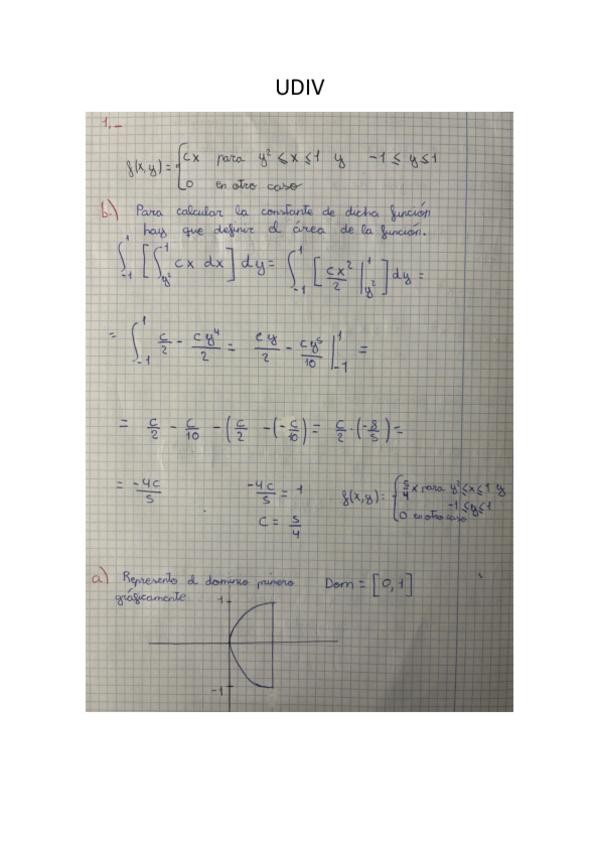 UDIV
1.-
f(x,y) = { cx para y² ≤ x ≤ 1 y -1 ≤ y ≤ 1
0 en otro caso
b.) Para calcular la constante de dicha función
hay que definir el área de la función.
∫_{-1}^{1} [ ∫_{y²}^{1} cx dx ] dy = ∫_{-1}^{1} [ cx²/2 |_{y²}^{1} ] dy =
= ∫_{-1}^{1} c/2 - cy⁴/2 = cy/2 - cy⁵/10 |_{-1}^{1} =
= c/2 - c/10 - (c/2 - (-c/10) = c/2 · (-8/5) =
= -4c/5 -4c/5 = 1 f(x,y) = { 5/4 x para y² ≤ x ≤ 1 y
-1 ≤ y ≤ 1
C = 5/4 0 en otro caso
a) Represento el dominio primero Dom = [0,1]
gráficamente.
1
-1